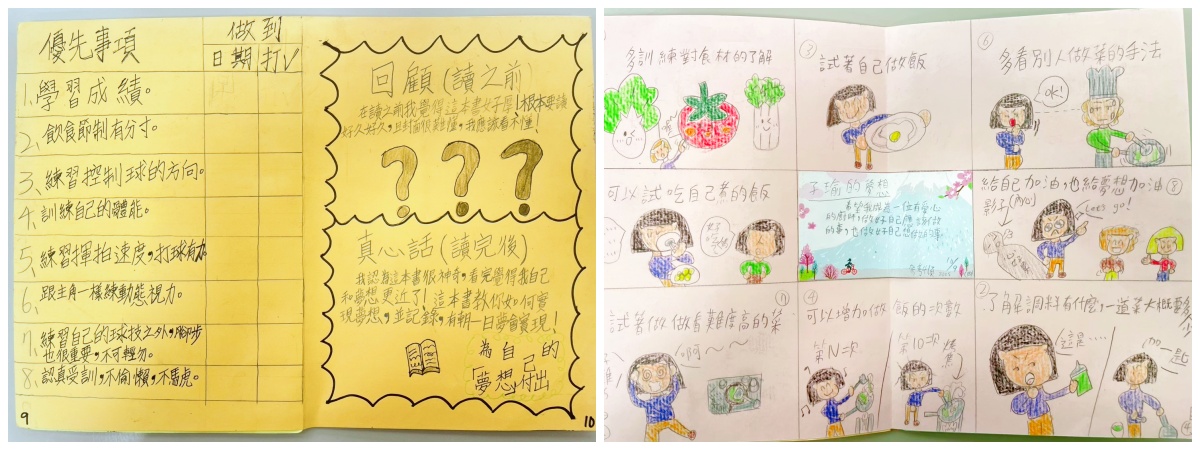 優先事項
做到
日期 打✓
1、學習成績。
2、飲食節制有分寸。
3、練習控制球的方向。
4、訓練自己的體能。
5、練習揮拍速度,打球有力。
6、跟主角一樣練動態視力。
7、練習自己的球技之外,腳步
也很重要,不可輕忽。
8、認真受訓,不偷懶,不馬虎。
9
回顧(讀之前)
在讀之前我覺得這本書好厚!根本要讀
好久好久,且封面很難懂,我應該看不懂!
? ? ?
真心話(讀完後)
我認為這本書很神奇,看完覺得我自己
和夢想更近了!這本書教你如何實
現夢想,並記錄,有朝一日夢會實現!
為自己的
「夢想」付出
10
多訓練對食材的了解
③
試著自己做飯
⑥
多看別人做菜的手法
OK!
可以試吃自己煮的飯
子瑜的夢想
希望我成為一位有愛心
的廚師,做好自己應該做
的事,也做好自己想做的事!
給自己加油,也給夢想加油
⑧
影子
Let's go!
試著做做看難度高的菜
啊~~
④
可以增加做飯的次數
第N次
第10次
焦
②
了解調料有什麼,一道菜大概
這是…
加一匙